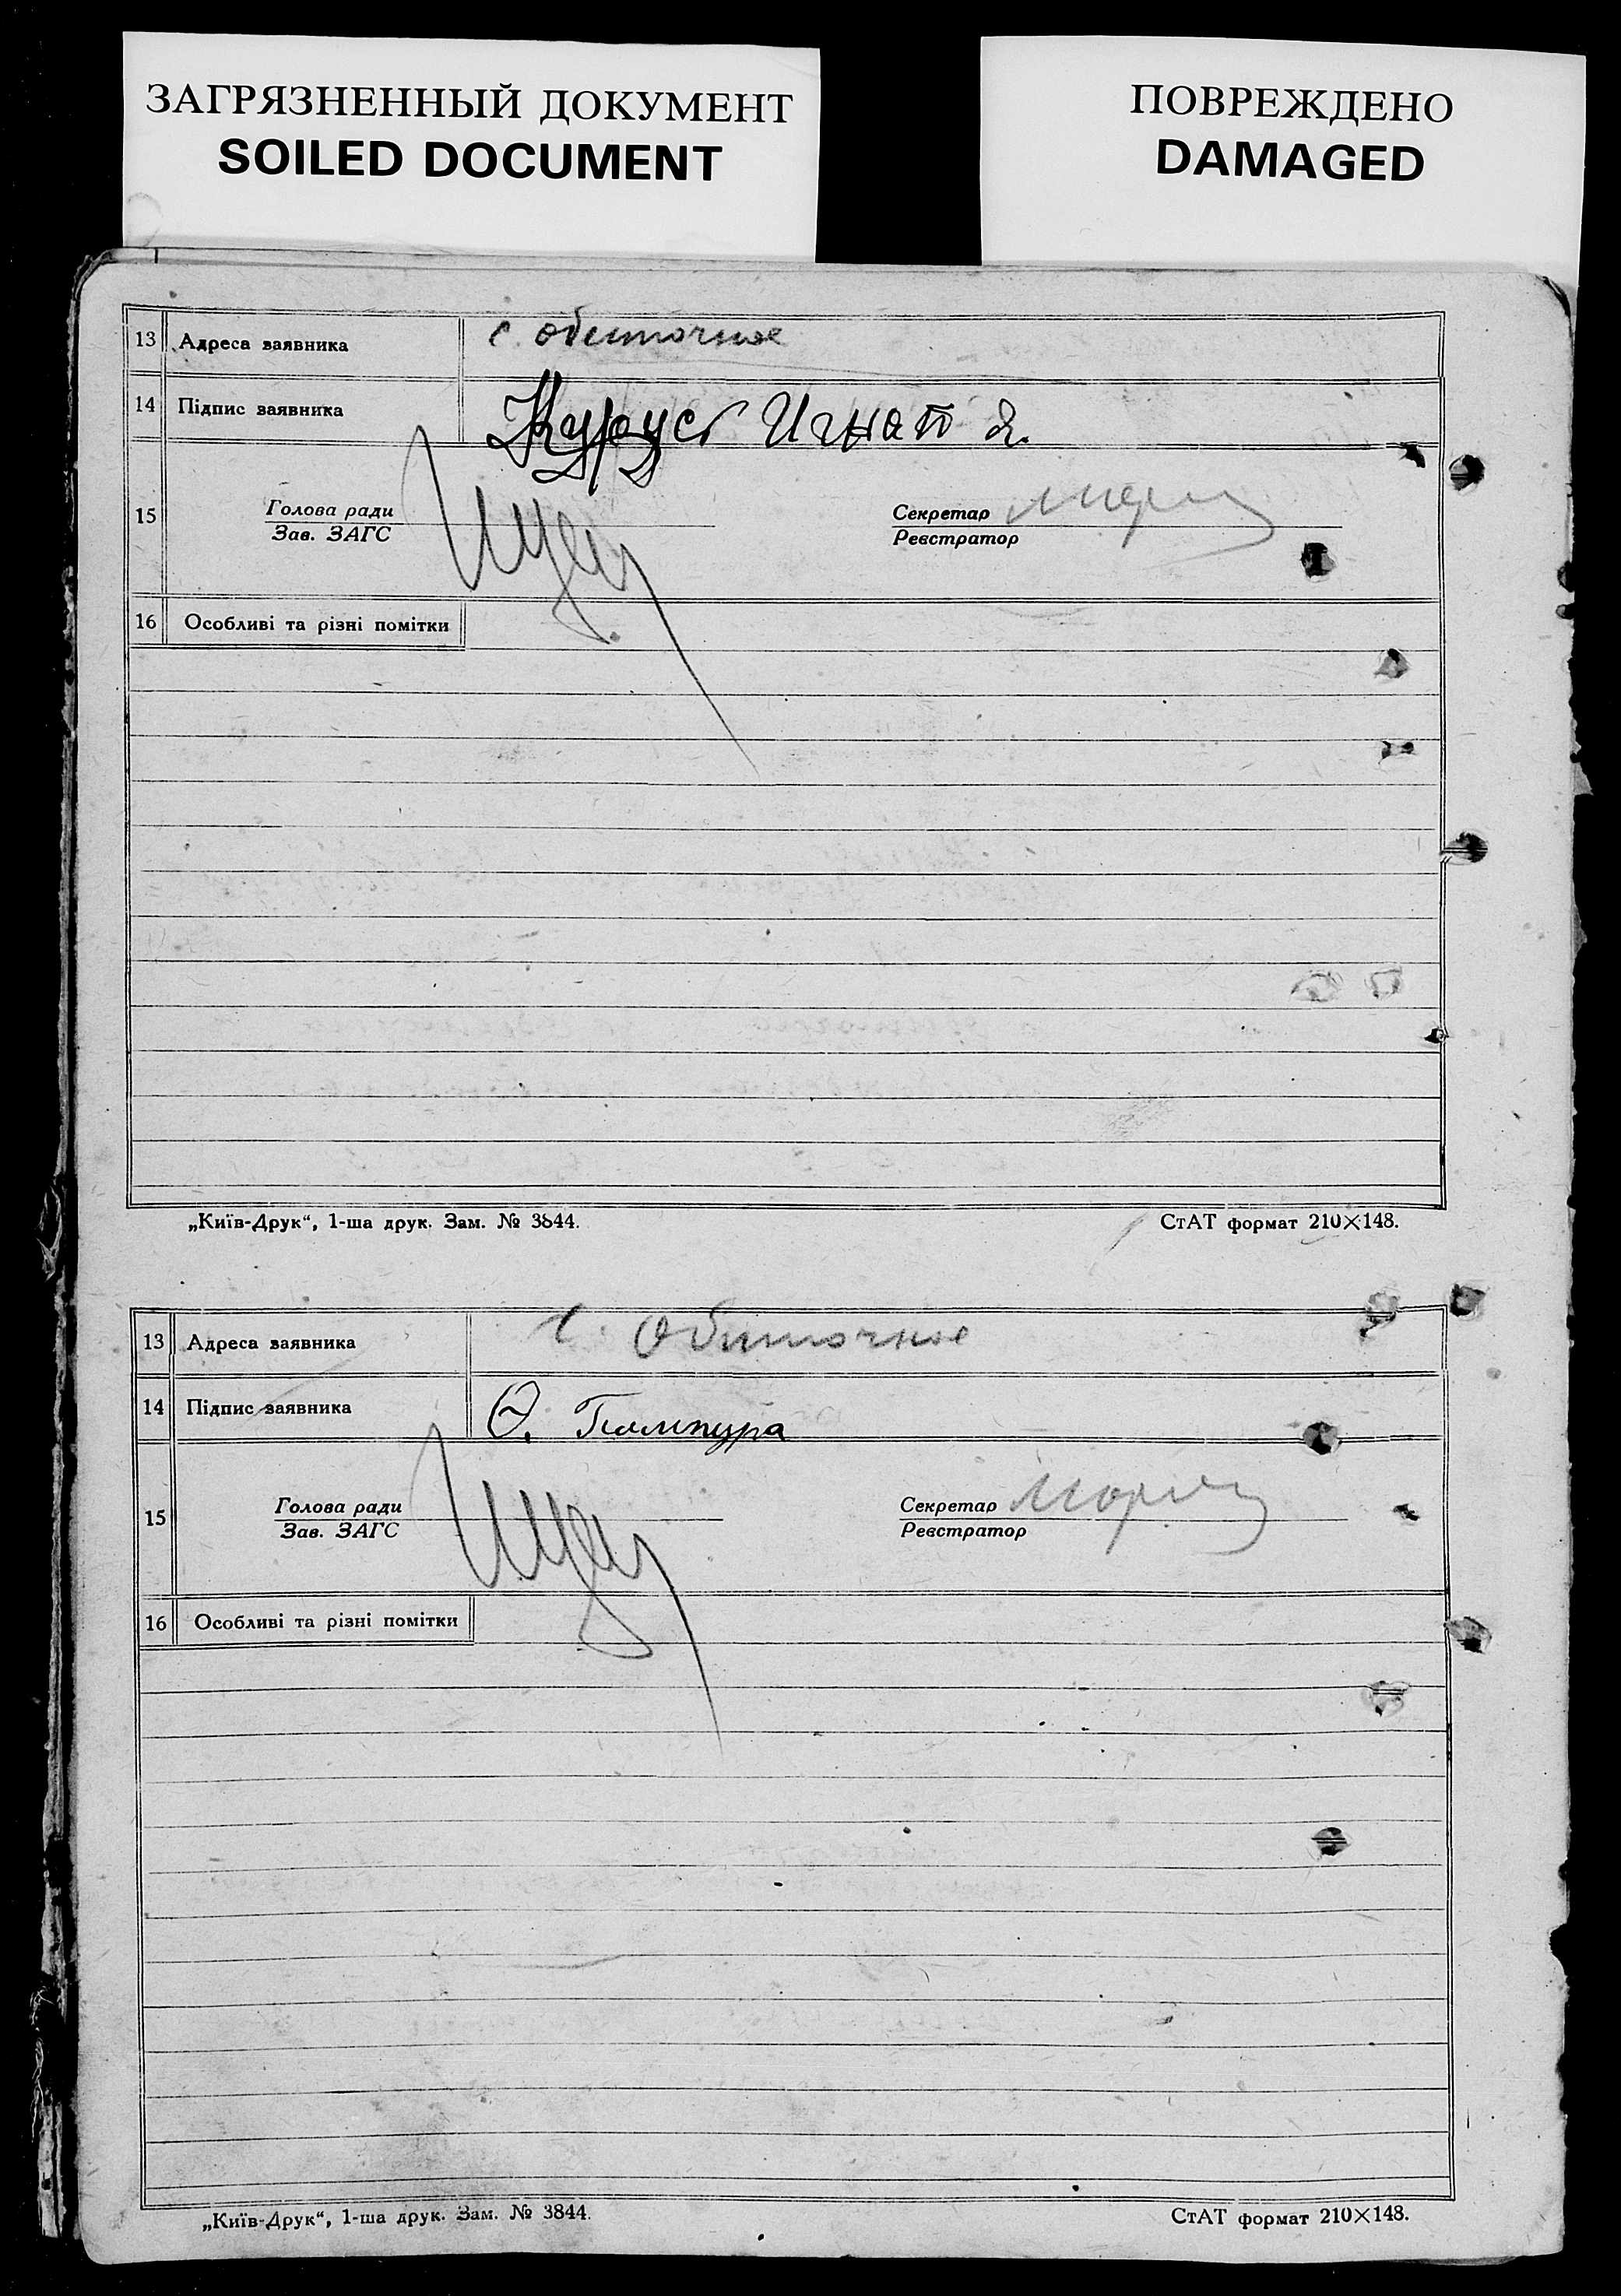 ЗАГРЯЗНЕННЫЙ ДОКУМЕНТ
SOILED DOCUMENT
ПОВРЕЖДЕНО
DAMAGED
13 Адреса заявника с. Обиточное
14 Підпис заявника Курусь Игнат Я.
15 Голова ради
Зав. ЗАГС
Секретар
Реєстратор
16 Особливі та різні помітки
„Київ-Друк“, 1-ша друк. Зам. № 3844.
СтАТ формат 210×148.
13 Адреса заявника с. Обиточное
14 Підпис заявника Ѳ.
15 Голова ради
Зав. ЗАГС
Секретар
Реєстратор
16 Особливі та різні помітки
„Київ-Друк“, 1-ша друк. Зам. № 3844.
СтАТ формат 210×148.